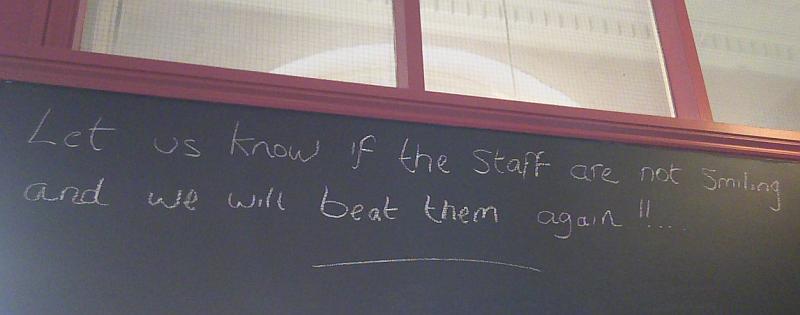 Let us know if the staff are not smiling
and we will beat them again !!....